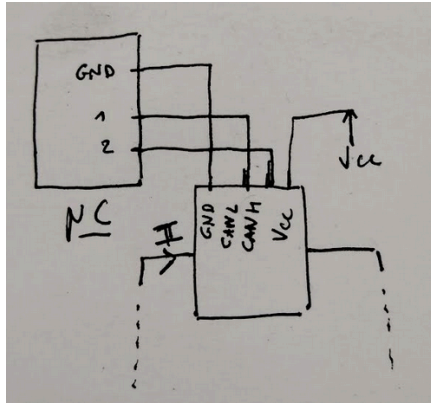 GND
1
2
Vcc
GND
CANL
CANH
Vcc